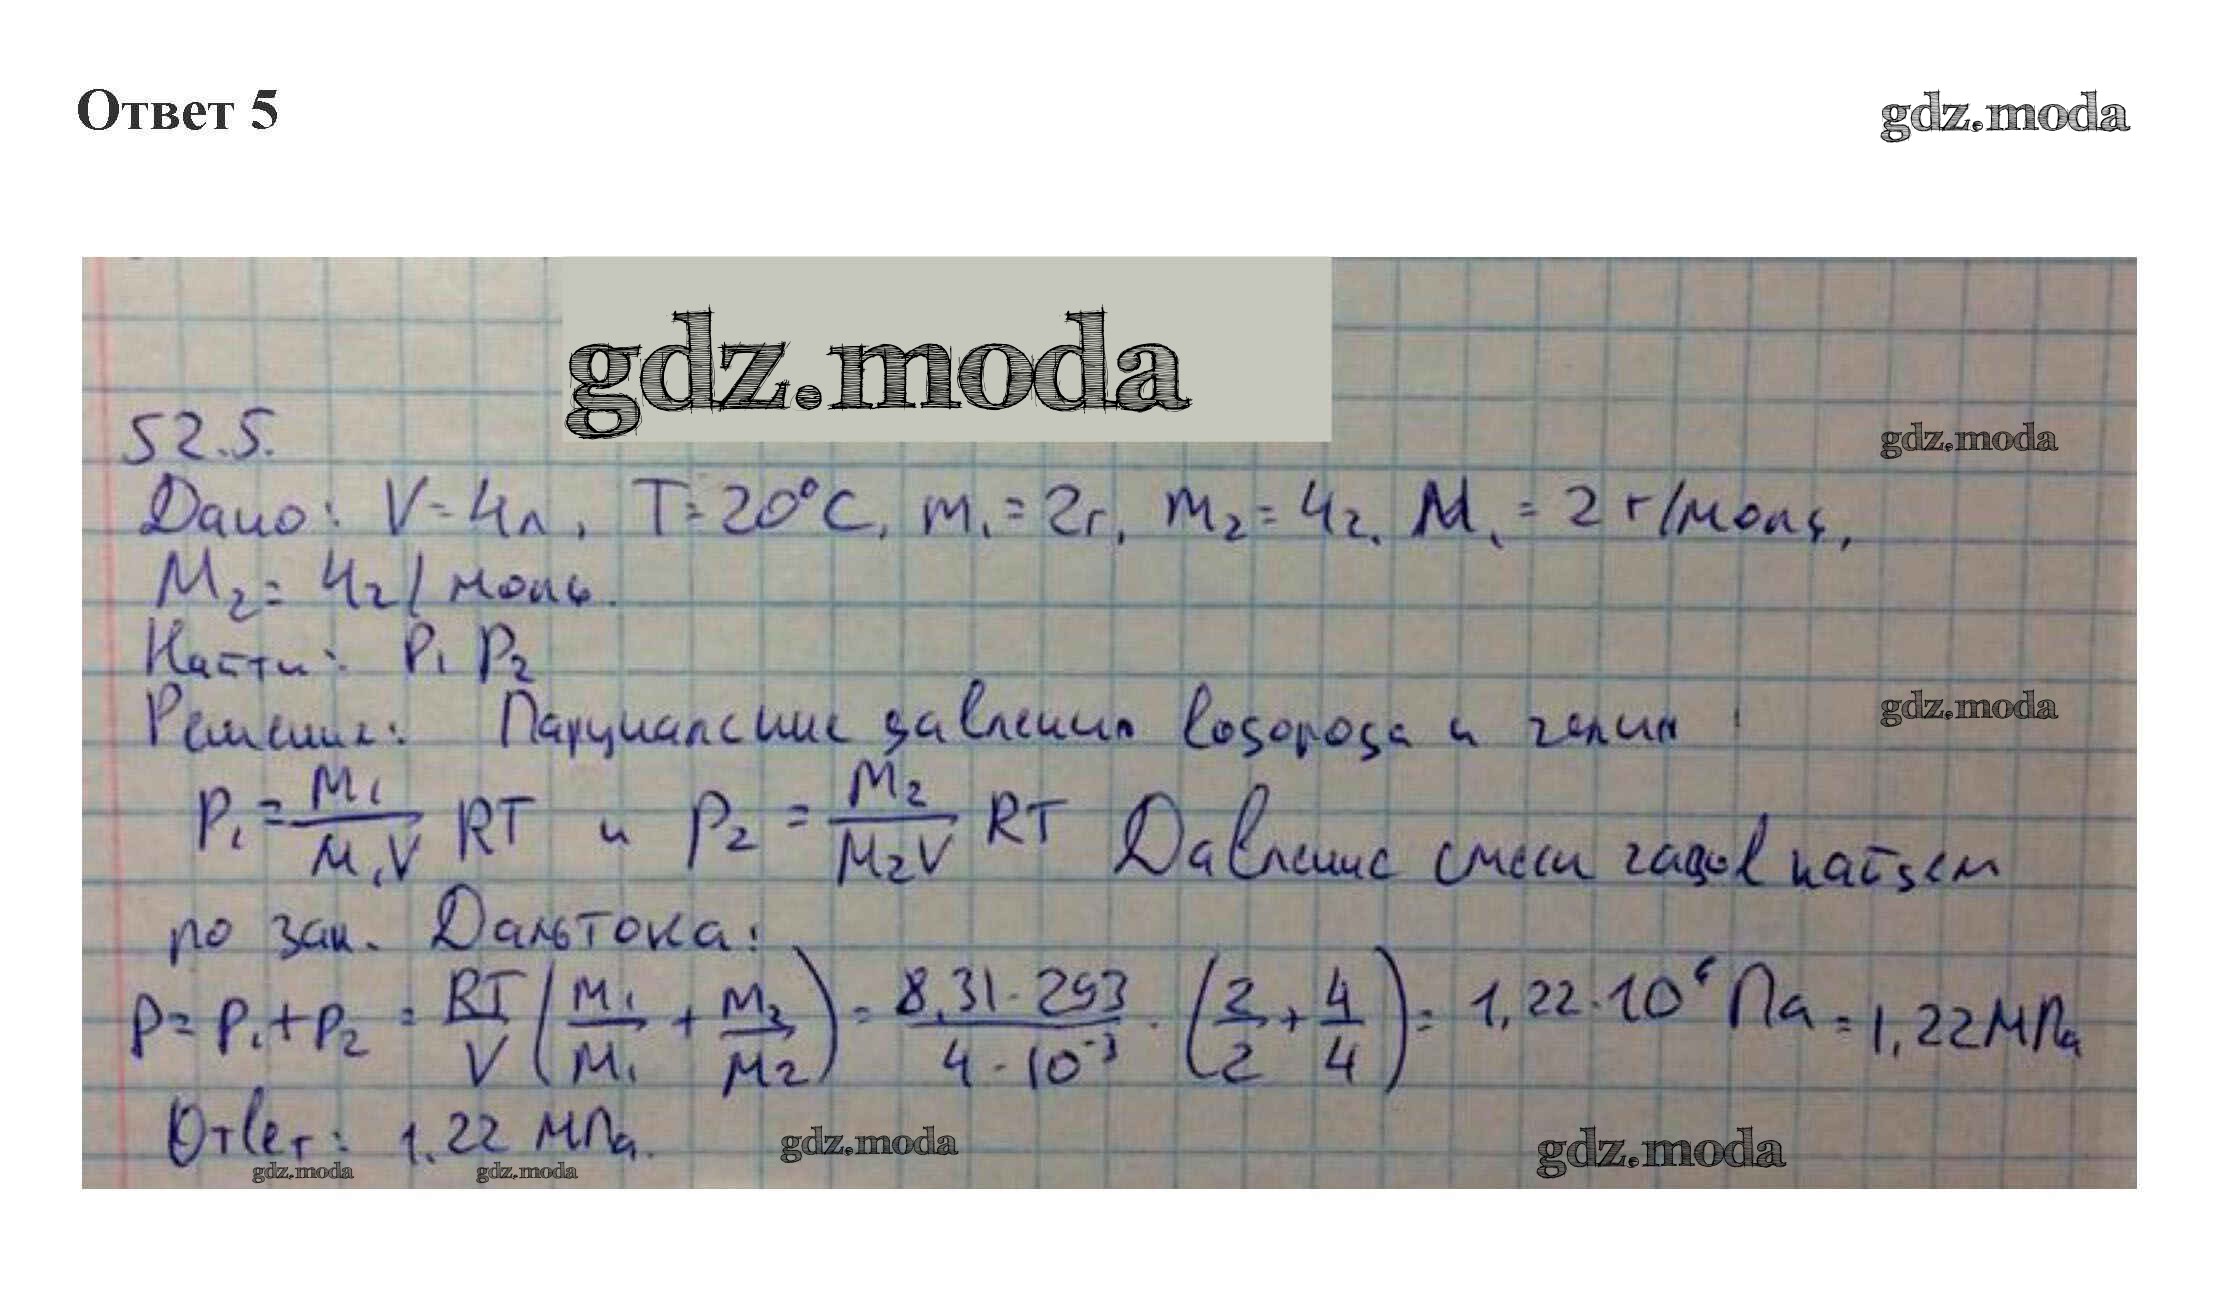 Ответ 5
gdz.moda
gdz.moda
52.5.
gdz.moda
Дано: V=4л, T=20°C, m₁=2г, m₂=4г. M₁=2 г/моль,
M₂=4г/моль.
Найти: P₁ P₂
Решение: Парциальные давления водорода и гелия:
gdz.moda
P₁ = m₁/(M₁V) RT и P₂ = m₂/(M₂V) RT Давление смеси газов найдем
по зак. Дальтона:
P = P₁+P₂ = RT/V (m₁/M₁ + m₂/M₂) = (8,31·293)/(4·10⁻³) · (2/2 + 4/4) = 1,22·10⁶ Па = 1,22МПа
Ответ: 1.22 МПа.
gdz.moda
gdz.moda
gdz.moda
gdz.moda